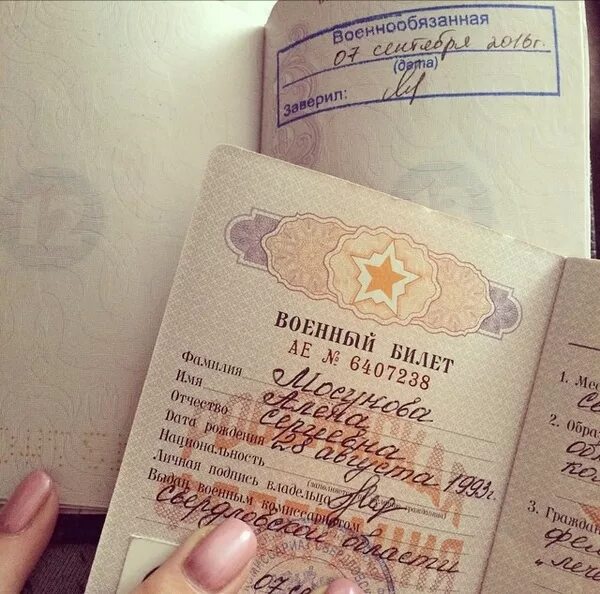 Военнообязанная
07 сентября 2016г.
(дата)
Заверил:
12
ВОЕННЫЙ БИЛЕТ
АЕ № 6407238
Фамилия Мосунова
Имя Алена
Отчество Сергеевна
Дата рождения 28 августа 1993г.
Национальность
(заполняется
Личная подпись владельца
Выдан военным комиссариатом
Свердловской области
07 се
1. Мес
2. Обра
3. Граждан
фел
"лече